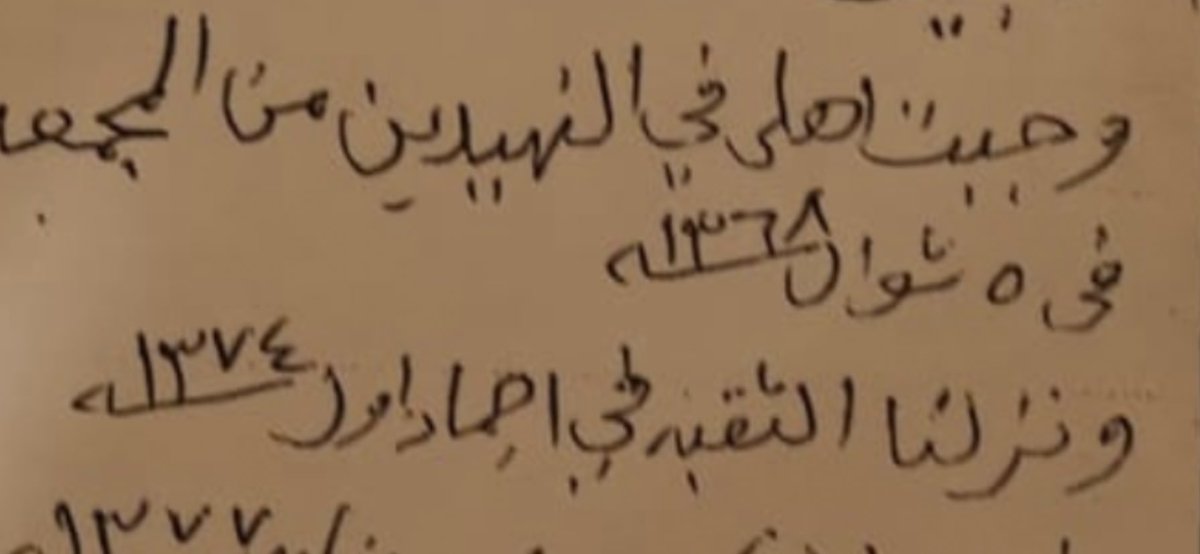 وجيت اهلي في النهيدين من المجمعه
في ٥ شوال ١٣٦٨هـ
ونزلنا الثقبه في اجماد اول ١٣٧٤هـ
١٣٧٧